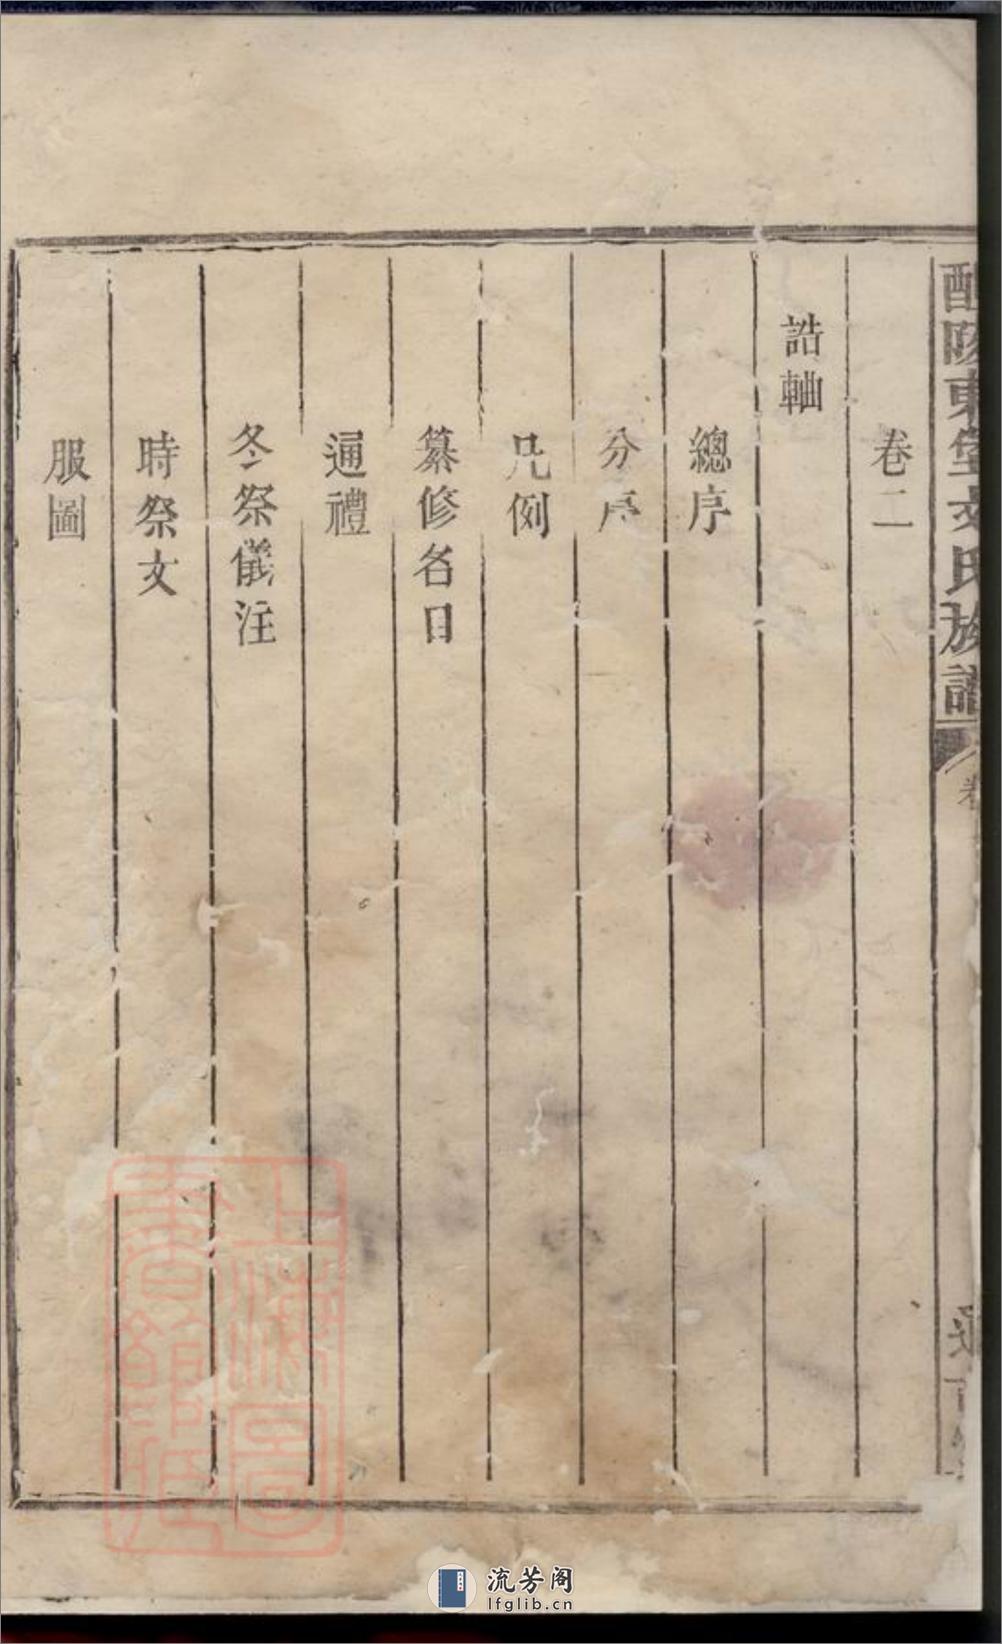 醴陵東堂文氏族譜 卷
卷二
誥軸
總序
分序
凡例
纂修名目
通禮
冬祭儀注
時祭文
服圖
上海圖書館藏
流芳阁
lfglib.cn